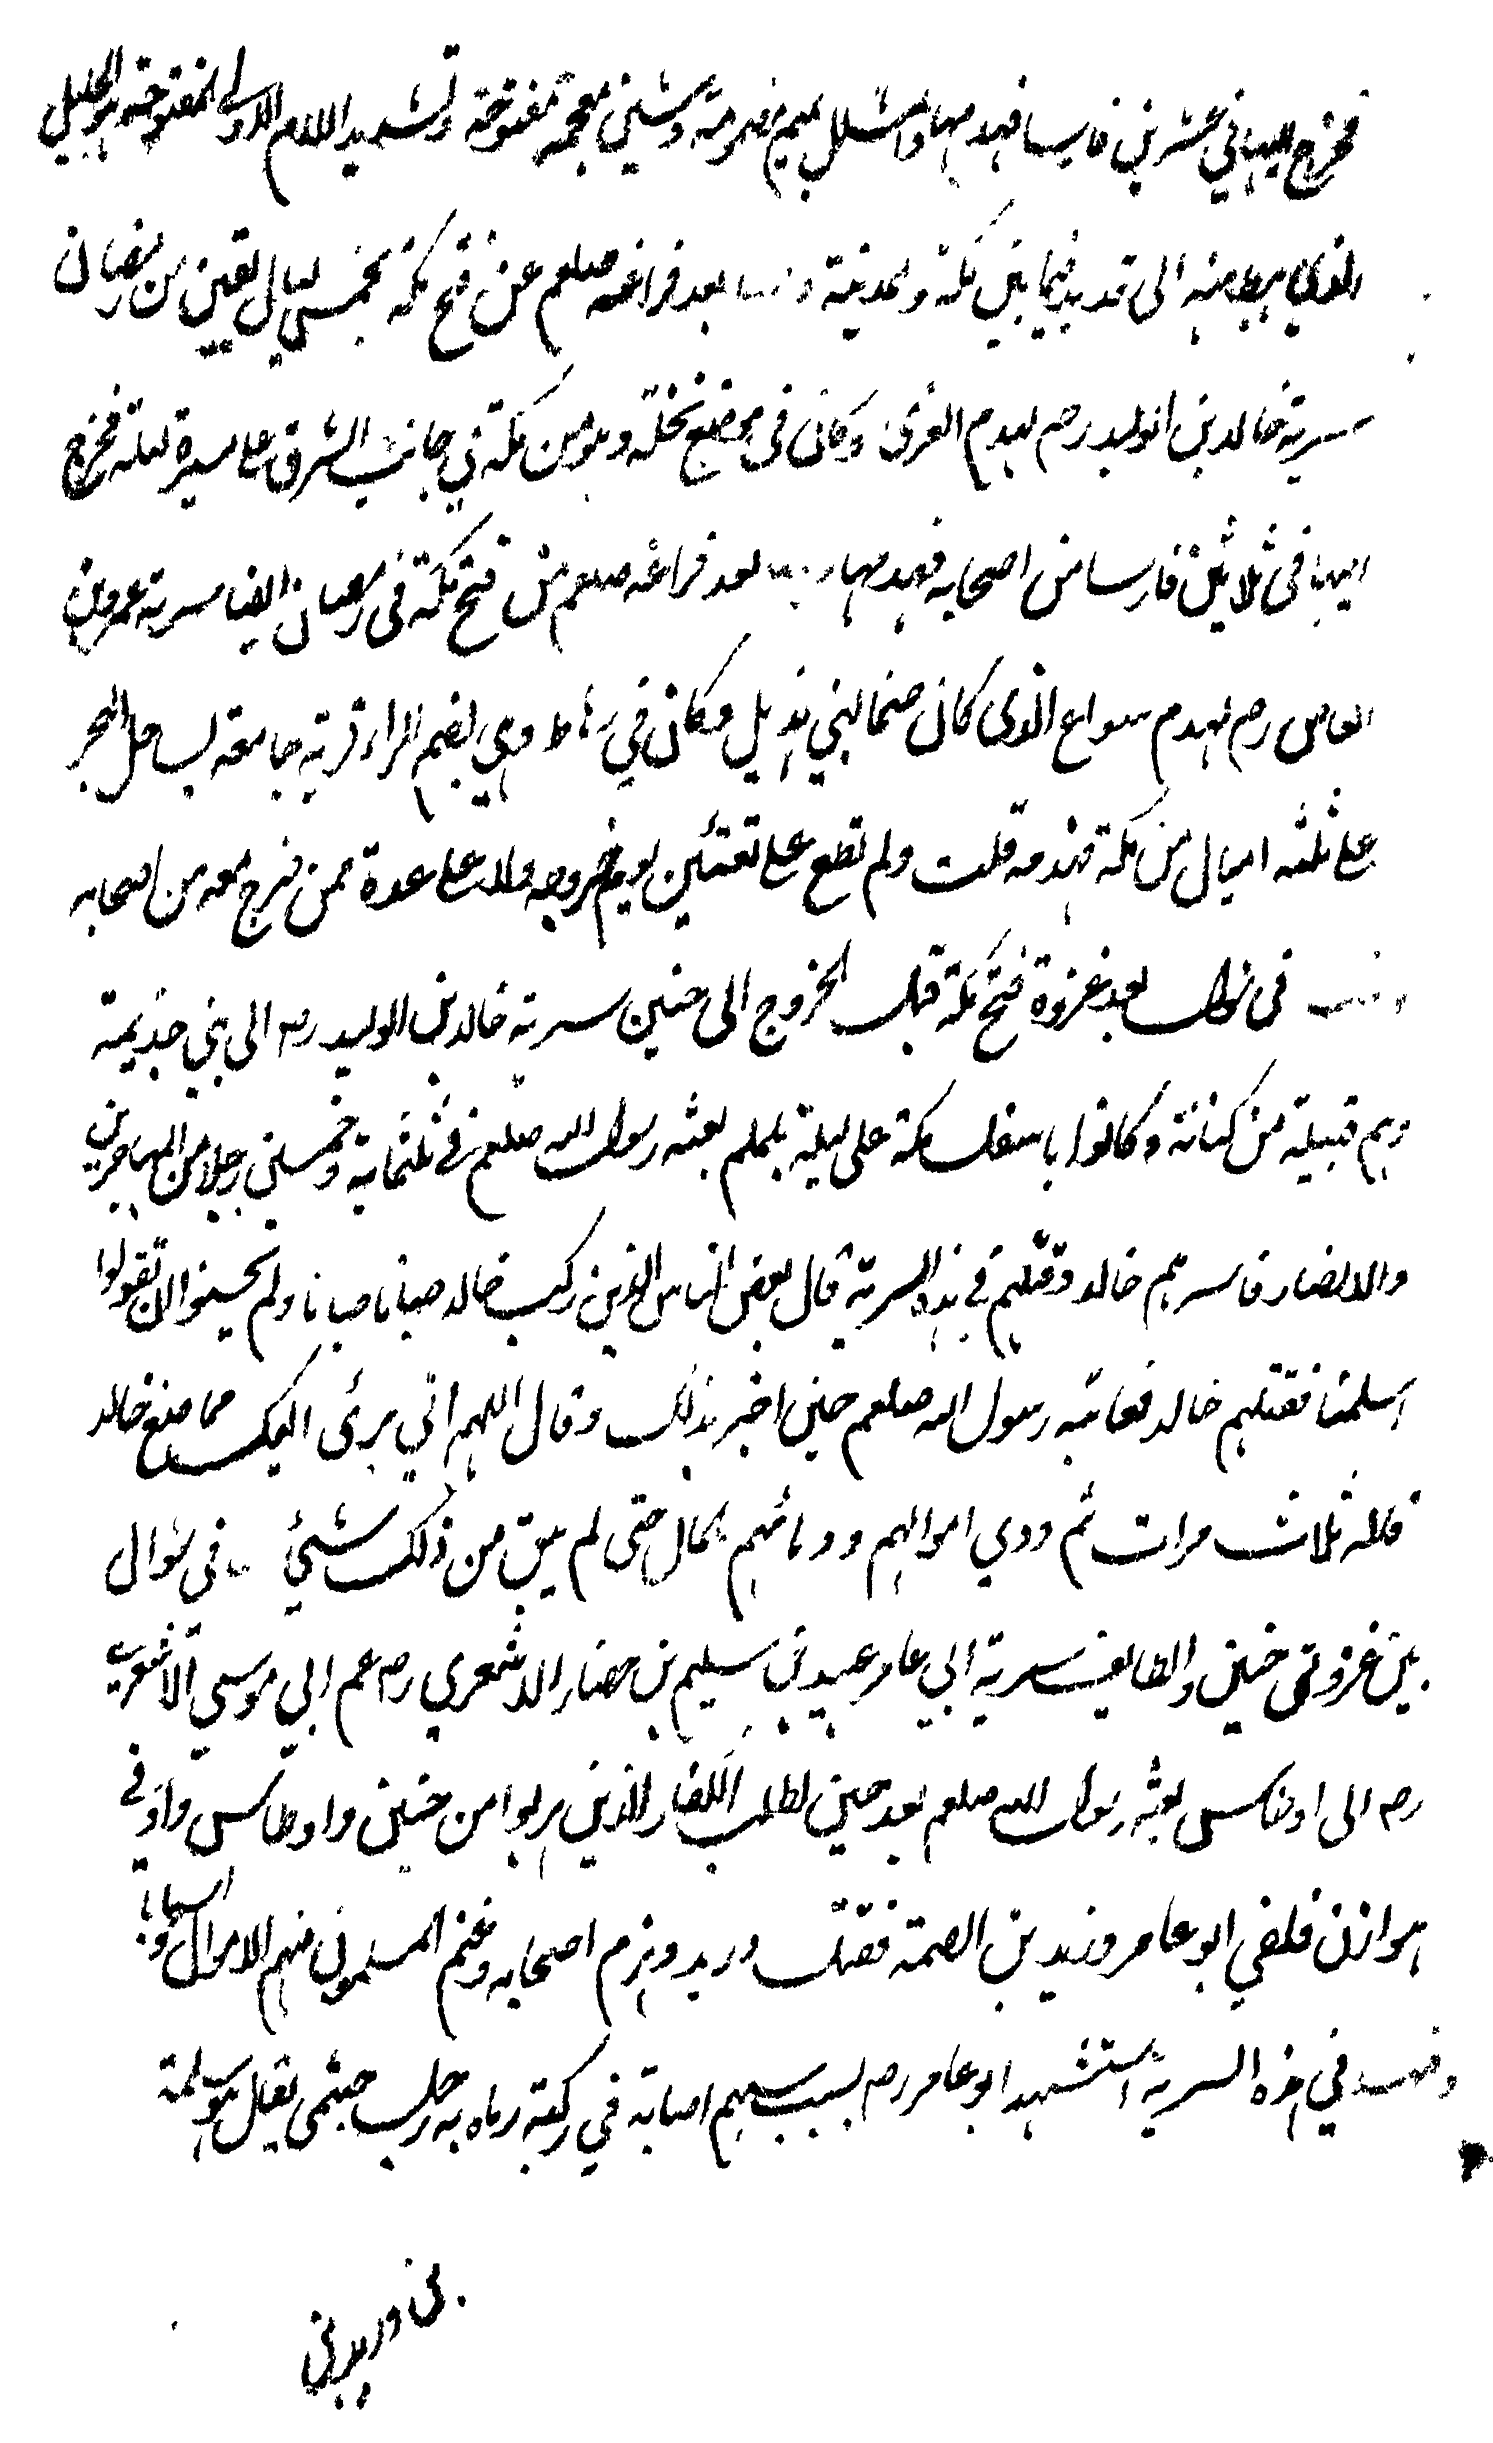 فخرج اليها في عشرين فارسا فهدمها والمشلل بميم مضمومة وشين معجمة مفتوحة وتشديد اللام الاولى المفتوحة هو الجبل
الذي يهبط منه الى قديد فيما بين مكة والمدينة بعد فراغه صلعم عن فتح مكة بخمس ليال بقين من رمضان
سرية خالد بن الوليد رضـ لهدم العزى وكان في موضع نخلة وهو من مكة في جانب الشرق على مسيرة ليلة فخرج
اليها في ثلاثين فارسا من اصحابه فهدمها بعد فراغه صلعم من فتح مكة في رمضان ايضا سرية عمرو بن
العاص رضـ لهدم سواع الذي كان صنما لبني هذيل وكان في رهاط وهي بضم الراء قرية جامعة بساحل البحر
على ثلثة اميال من مكة فهدمه قلت ولم نطع على تعيين يوم خروجه ولا على عدة ممن خرج معه من اصحابه
في شوال بعد غزوة فتح مكة قبل الخروج الى حنين سرية خالد بن الوليد رضـ الى بني جذيمة
وهم قبيلة من كنانة وكانوا باسفل مكة على ليلة يلملم بعثه رسول الله صلعم في ثلثماية وخمسين رجلا من المهاجرين
والانصار فاسرهم خالد وقتلهم في هذه السرية قال بعض الناس الذين ركب خالد صبانا صبانا ولم يحسنوا ان يقولوا
اسلمنا فقتلهم خالد فعاتبه رسول الله صلعم حين اخبر بذلك وقال اللهم اني برئ اليك مما صنع خالد
قاله ثلاث مرات ثم ودي اموالهم ودمائهم بمال حتى لم يبق من ذلك شيئ في شوال
بين غزوتي حنين والطايف سرية ابي عامر عبيد بن سليم بن حضار الاشعري رضـ عم ابي موسى الاشعري
رضـ الى اوطاس بعثه رسول الله صلعم بعد حنين لطلب الكفار الذين هربوا من حنين واوطاس واد في
هوازن فلقي ابو عامر دريد بن الصمة فقتل دريد وهزم اصحابه وغنم المسلمون منهم الاموال والسبايا
وفيها في هذه السرية استشهد ابو عامر رضـ بسبب سهم اصابه في ركبته رماه به رجل جشمي يقال هو سلمة
بن دريد بن